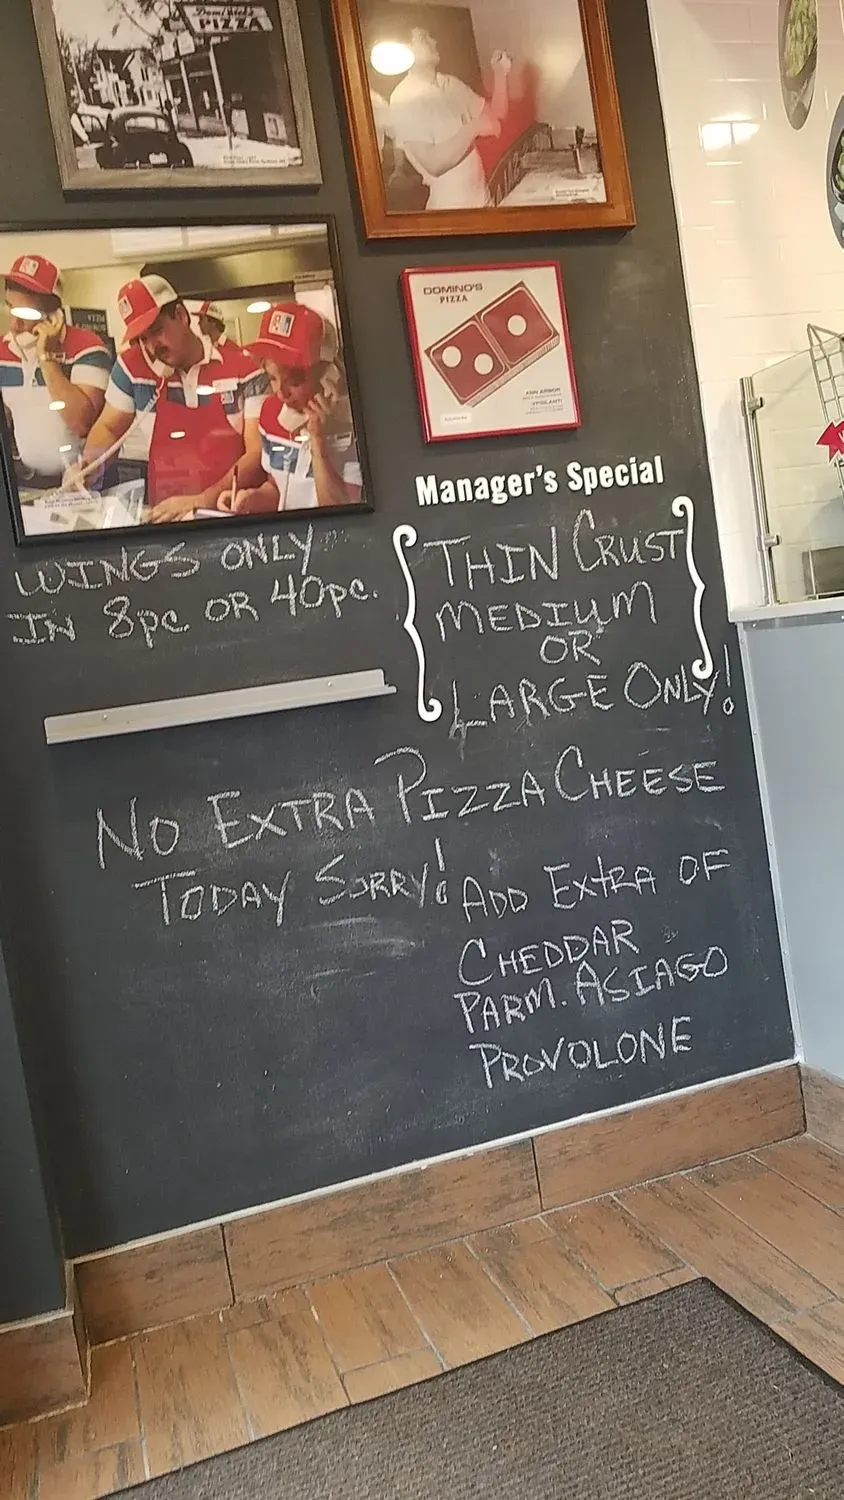 Dominick's
PIZZA
DOMINO'S
PIZZA
ANN ARBOR
YPSILANTI
Manager's Special
WINGS ONLY
IN 8pc OR 40pc.
THIN CRUST
MEDIUM
OR
LARGE ONLY!
NO EXTRA PIZZA CHEESE
TODAY SORRY!
ADD EXTRA OF
CHEDDAR
PARM. ASIAGO
PROVOLONE